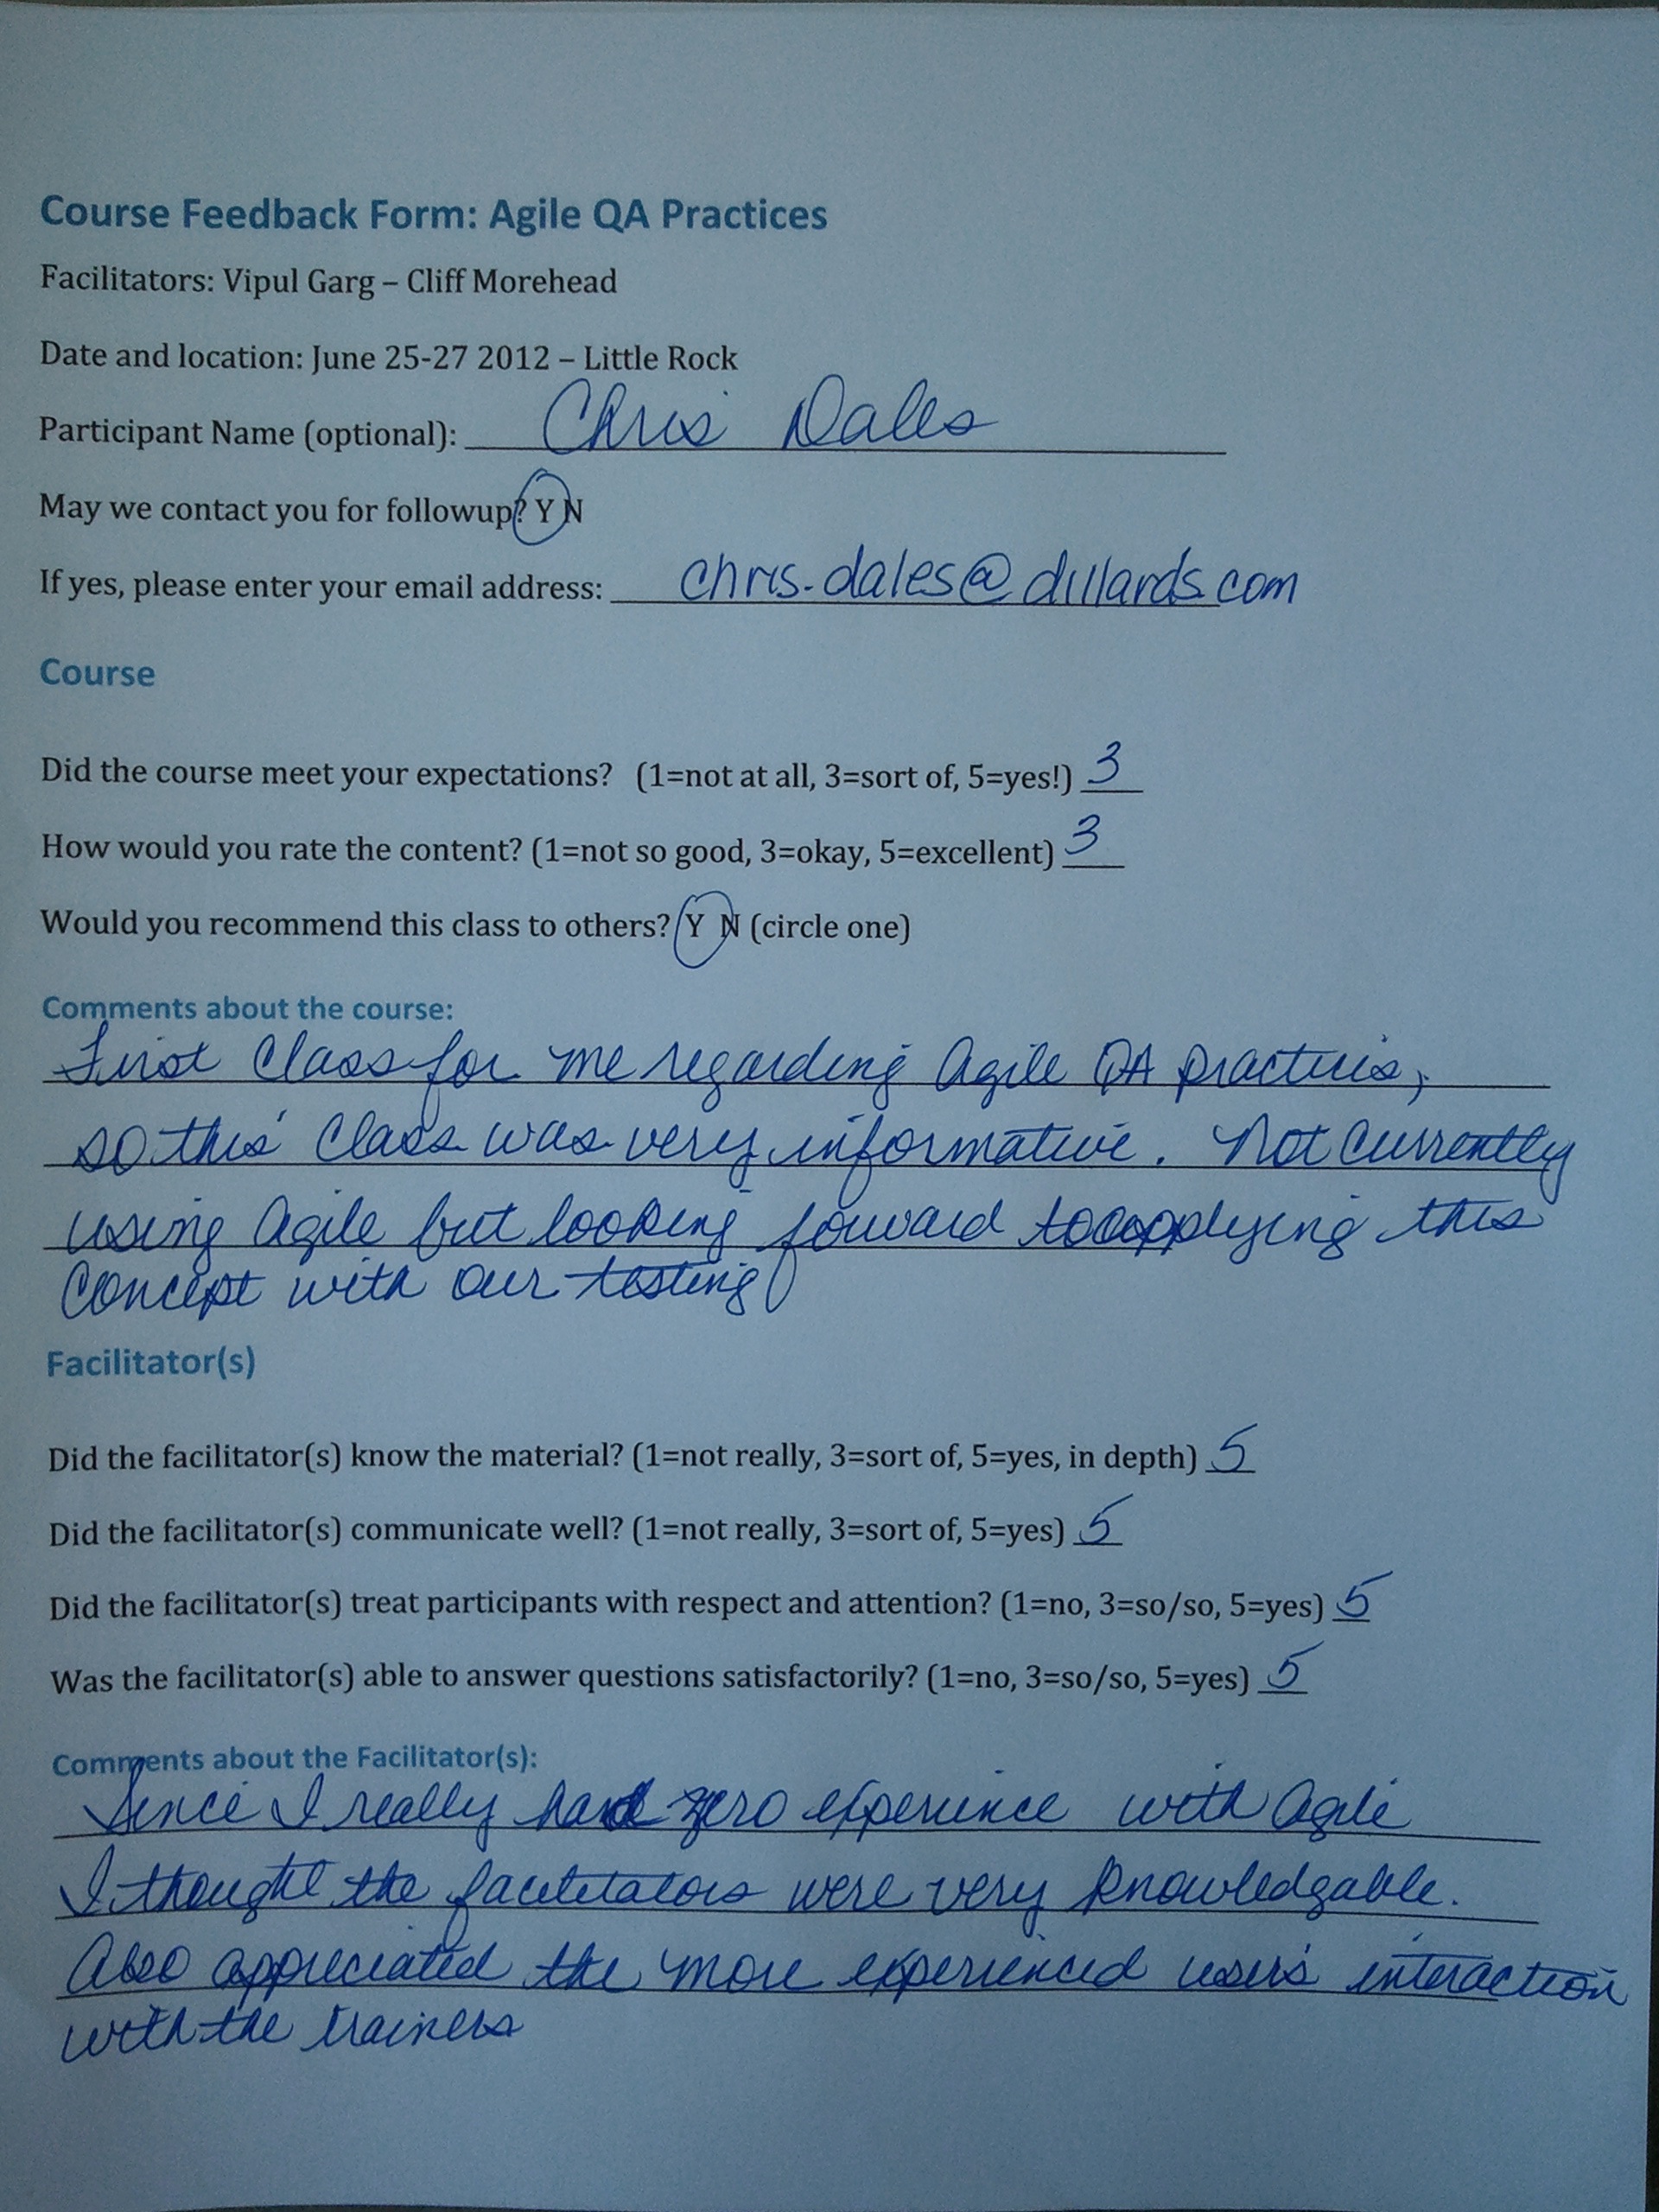 Course Feedback Form: Agile QA Practices
Facilitators: Vipul Garg – Cliff Morehead
Date and location: June 25-27 2012 – Little Rock
Participant Name (optional): Chris Dales
May we contact you for followup? Y N
If yes, please enter your email address: chris.dales@dillards.com
Course
Did the course meet your expectations? (1=not at all, 3=sort of, 5=yes!) 3
How would you rate the content? (1=not so good, 3=okay, 5=excellent) 3
Would you recommend this class to others? Y N (circle one)
Comments about the course:
First Class for me regarding Agile QA practices,
so this class was very informative. Not currently
using Agile but looking foward to applying this
concept with our testing
Facilitator(s)
Did the facilitator(s) know the material? (1=not really, 3=sort of, 5=yes, in depth) 5
Did the facilitator(s) communicate well? (1=not really, 3=sort of, 5=yes) 5
Did the facilitator(s) treat participants with respect and attention? (1=no, 3=so/so, 5=yes) 5
Was the facilitator(s) able to answer questions satisfactorily? (1=no, 3=so/so, 5=yes) 5
Comments about the Facilitator(s):
Since I really had zero experience with Agile
I thought the facilitators were very knowledgable.
Also appreciated the more experienced user's interaction
with the trainers